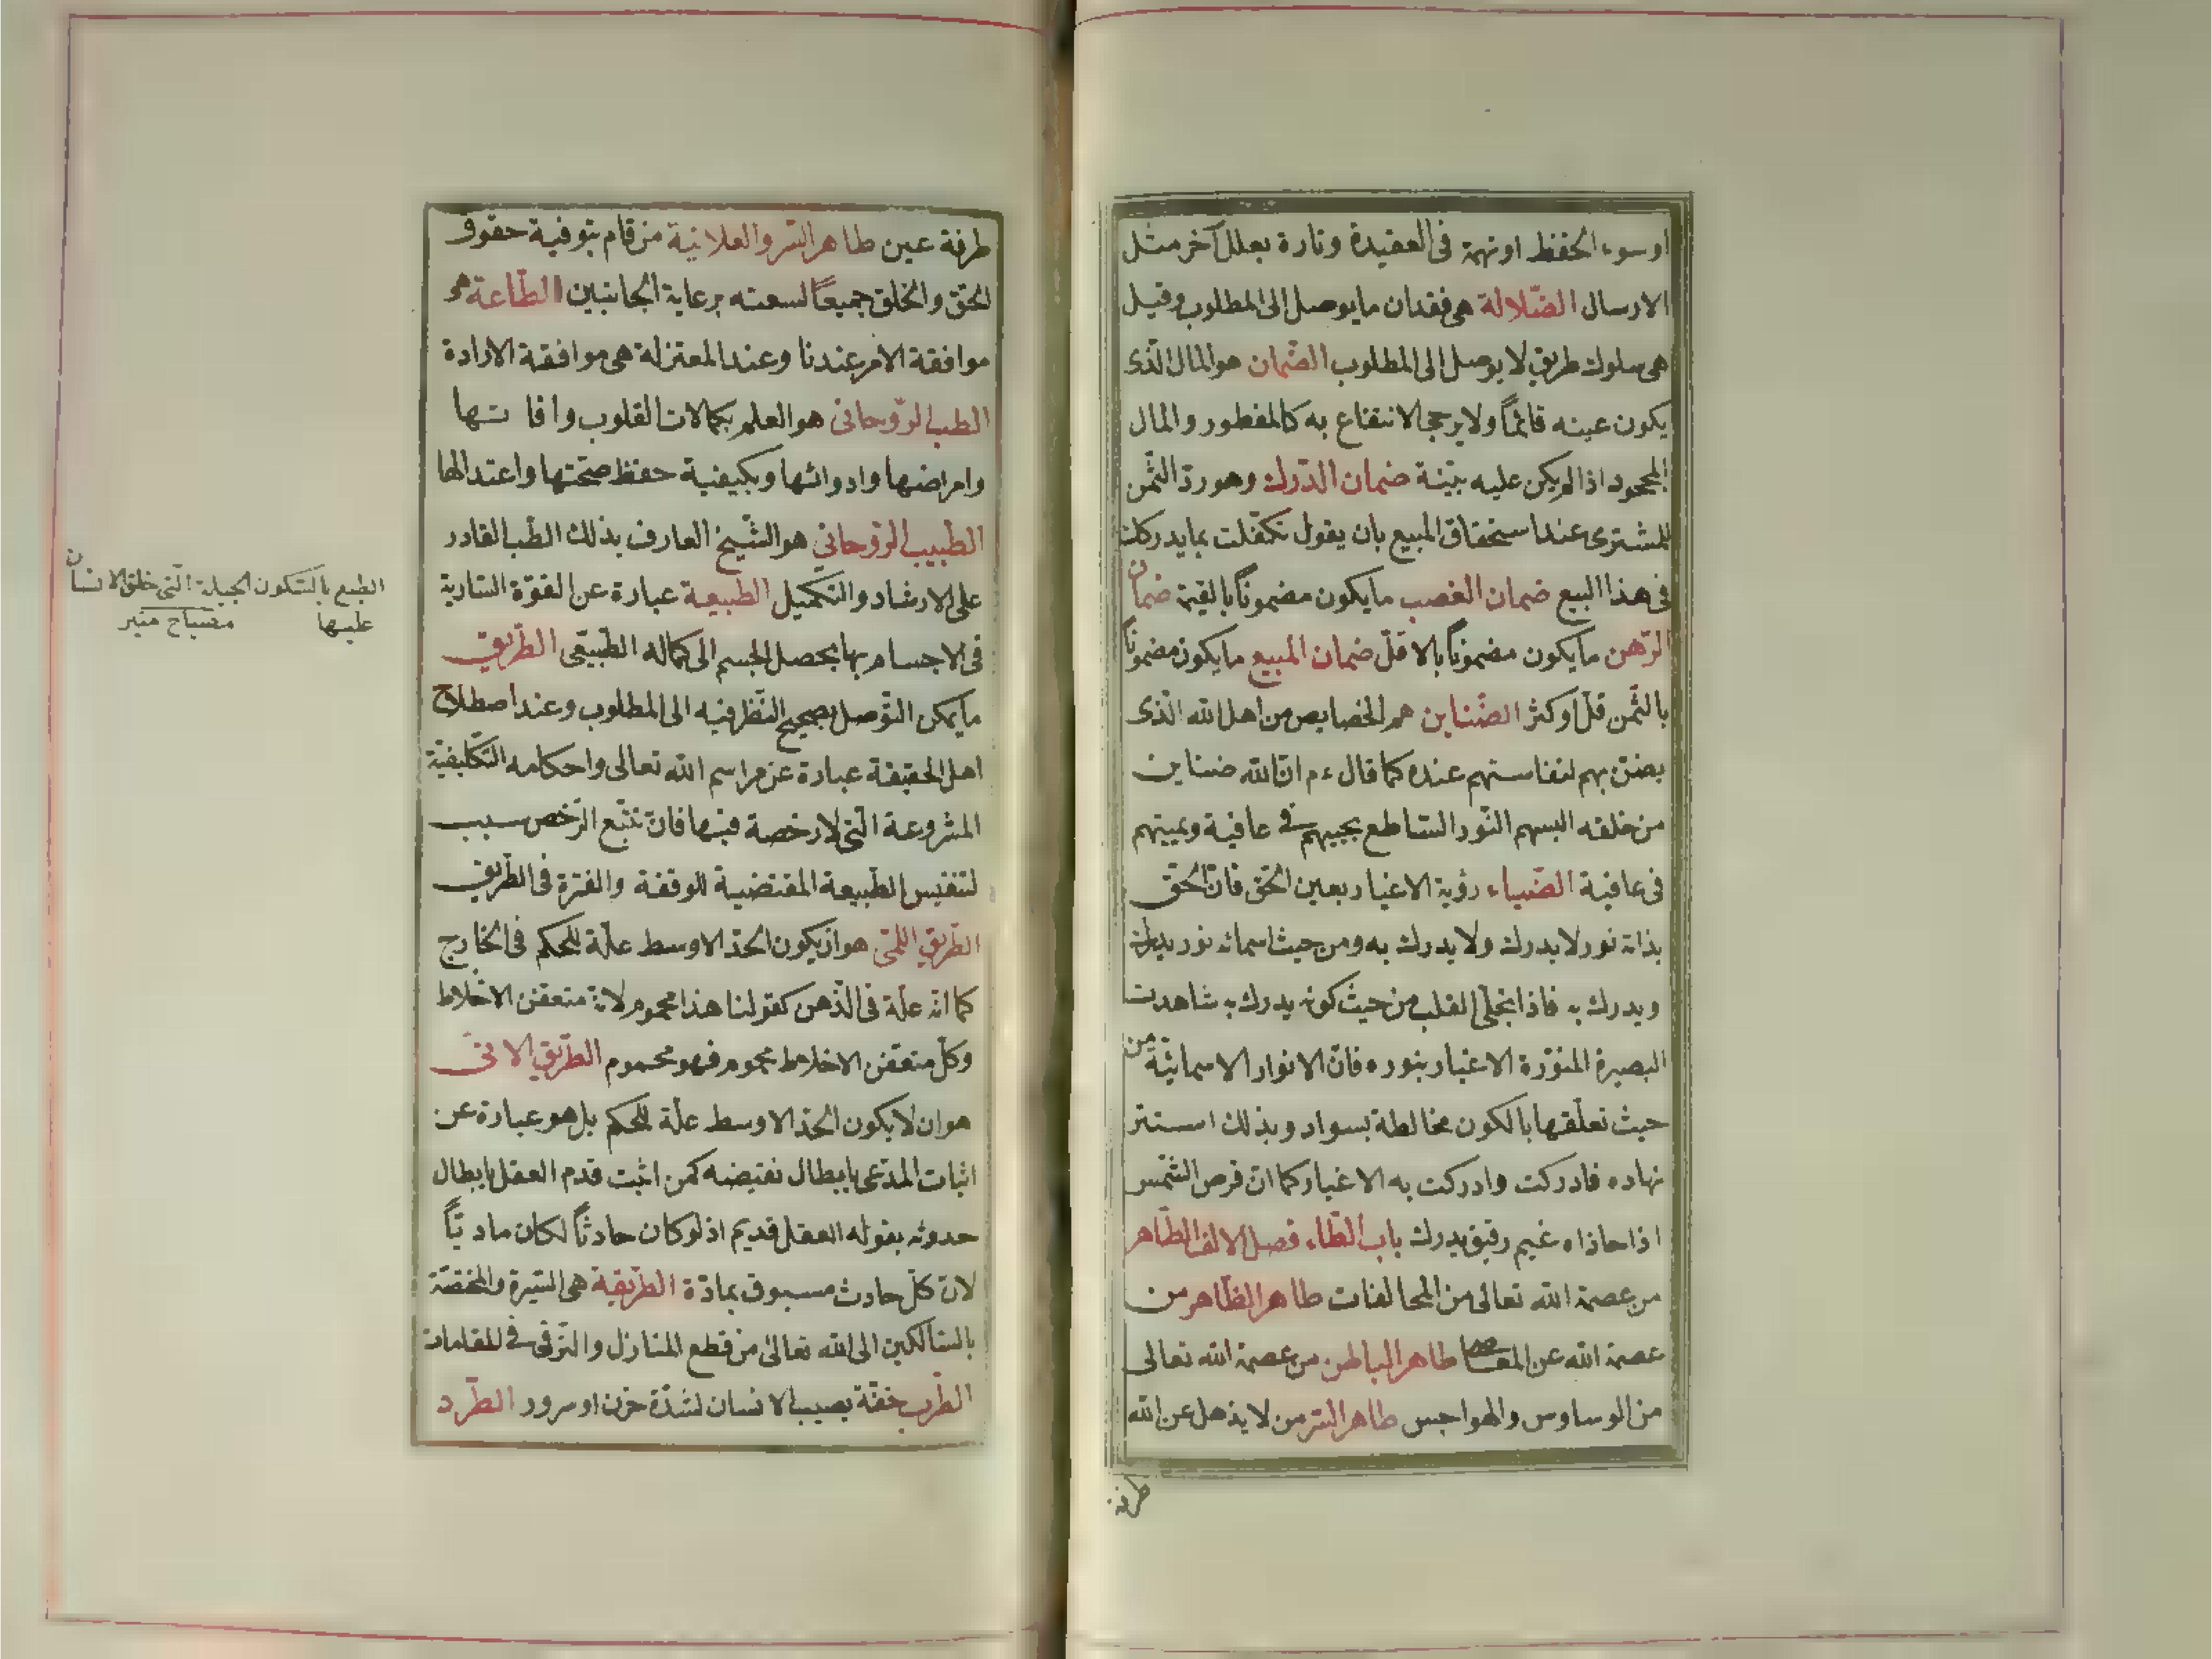 اوسوء الحفظ اوتهمة فى العقيدة وتارة بعلل آخر مثل
الارسال الضّلالة هى فقدان مايوصل الى المطلوب وقيل
هى سلوك طريق لا يوصل الى المطلوب الضّمان هو المال الّذى
يكون عينه قائماً ولا يرجى الانتفاع به كالمغطور والمال
المجحود اذا لم يكن عليه بيّنة ضمان الدّرك وهو ردّ الثّمن
للمشترى عند استحقاق المبيع بان يقول تكفّلت بما يدركك
فى هذا البيع ضمان الغصب ما يكون مضموناً بالقيمة ضمان
الرّهن ما يكون مضموناً بالاقلّ ضمان المبيع ما يكون مضموناً
بالثّمن قلّ او كثر الضّناين هم الخصايص من اهل الله الّذى
يضنّ بهم لنفاستهم عنده كما قال ءم انّ لله ضناين
من خلقه البسهم النّور السّاطع يحييهم فى عافية ويميتهم
فى عافية الضّياء رؤية الاغيار بعين الحّق فانّ الحقّ
بذاته نور لا يدرك ولا يدرك به ومن حيث اسمائه نور يدرك
ويدرك به فاذا تجلّى القلب من حيث كونه يدرك به شاهدت
البصيرة المنوّرة الاغيار بنوره فانّ الانوار الاسمائيّة من
حيث تعلّقها بالكون مخالطة بسواد وبذلك استتر
نهاره فادركت وادركت به الاغيار كما انّ قرص الشّمس
اذا حاذاه غيم رقيق يدرك باب الطّاء فصل الالف الطّاهر
من عصمة الله تعالى من المخالفات طاهر الظّاهر من
عصمة الله عن المعاصى طاهر الباطن من عصمة الله تعالى
من الوساوس والهواجس طاهر السّر من لا يذهل عن الله
طرفة
طرفة عين طاهر السّر والعلانية من قام بتوفية حقوق
الحّق والخلق جميعاً لسعته برعاية الجانبين الطّاعة هو
موافقة الامر عندنا وعند المعتزلة هى موافقة الارادة
الطب الرّوحانى هو العلم بكمالات القلوب وافاتها
وامراضها وادوائها وبكيفية حفظ صحّتها واعتدالها
الطّبيب الرّوحاني هو الشّيخ العارف بذلك الطّب القادر
على الارشاد والتّكميل الطبيعية عبارة عن القوّة السّارية
فى الاجسام بها يحصل الجسم الى كماله الطّبيعّى الطّريق
ما يمكن التّوصل بصحيح النّظر فيه الى المطلوب وعند اصطلاح
اهل الحقيقة عبارة عن مراسم الله تعالى واحكامه التّكليفيّة
المشروعة الّتى لا رخصة فيها فانّ تتبّع الرّخص سبب
لتنفيس الطّبيعة المقتضية للوقفة والفترة فى الطّريق
الطّريق اللمّى هو ان يكون الحدّ الاوسط علّة للحكم فى الخارج
كما انّه علّة فى الذّهن كقولنا هذا محموم لانّه متعفّن الاخلاط
وكلّ متعفّن الاخلاط محموم فهو محموم الطّريق الانّى
هو ان لا يكون الحدّ الاوسط علّة للحكم بل هو عبارة عن
اثبات المدّعى بابطال نقيضه كمن اثبت قدم العقل بابطال
حدوثه بقوله العقل قديم اذ لو كان حادثاً لكان ماديّاً
لانّ كلّ حادث مسبوق بمادّة الطّريقة هى السّيرة والمختصّة
بالسّالكين الى الله تعالى من قطع المنازل والتّرقى فى المقامات
الطّرب خفّة يصيب الانسان لشدّة حزن او سرور الطّرد
الطبع بالسّكون الجبلة الّتى خلق الانسان
عليها مصباح منير